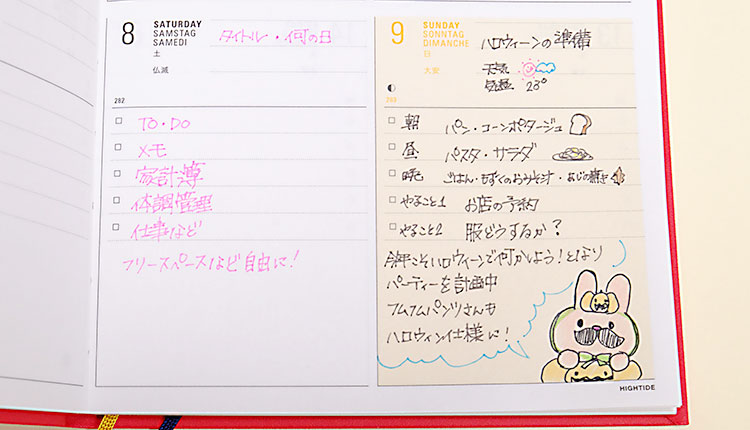 8
SATURDAY
SAMSTAG
SAMEDI
土
仏滅
タイトル・何の日
282
TO・DO
メモ
家計簿
体調管理
仕事など
フリースペースなど自由に！
9
SUNDAY
SONNTAG
DIMANCHE
日
大安
ハロウィーンの準備
天気
気温 23°
283
朝 パン・コーンポタージュ
昼 パスタ・サラダ
晩 ごはん・もずくのおみそ汁・あじの焼き
やること1 お店の予約
やること2 服どうするか？
今年こそハロウィーンで何かしよう！となり
パーティーを計画中
フムフムパンツさんも
ハロウィン仕様に！
HIGHTIDE